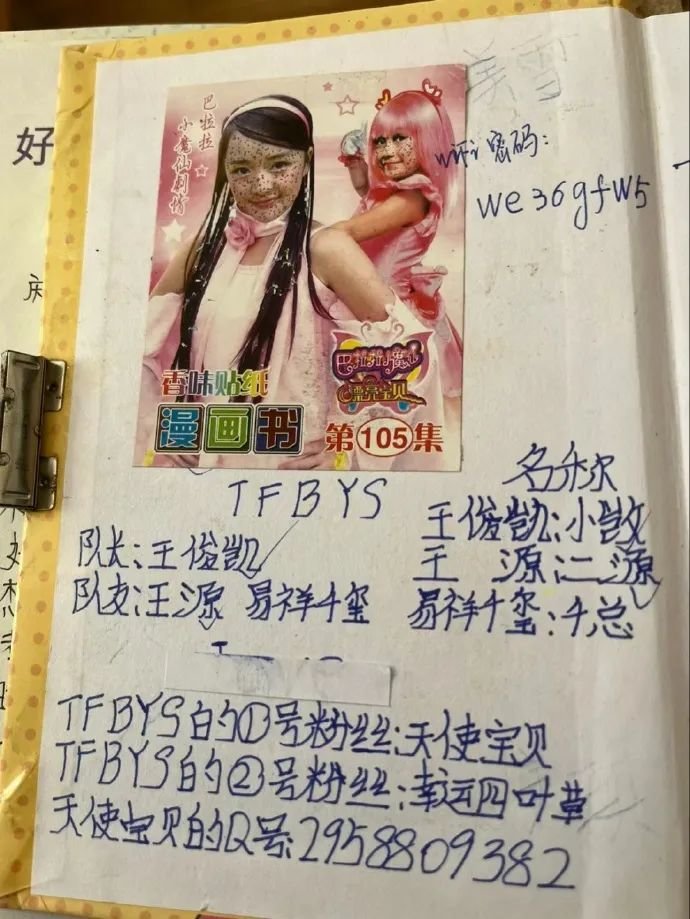 好
床
好
想
美雪
巴拉拉
小魔仙剧场
wifi密码:
we36gfw5
香味贴纸
漫画书
巴拉拉小魔仙
漂亮宝贝
第105集
TFBYS
名称
队长:王俊凯
王俊凯:小凯
队友:王源 易祥千玺
王 源:二源
易祥千玺:千总
TFBYS的①号粉丝:天使宝贝
TFBYS的②号粉丝:幸运四叶草
天使宝贝的Q号:2958809382